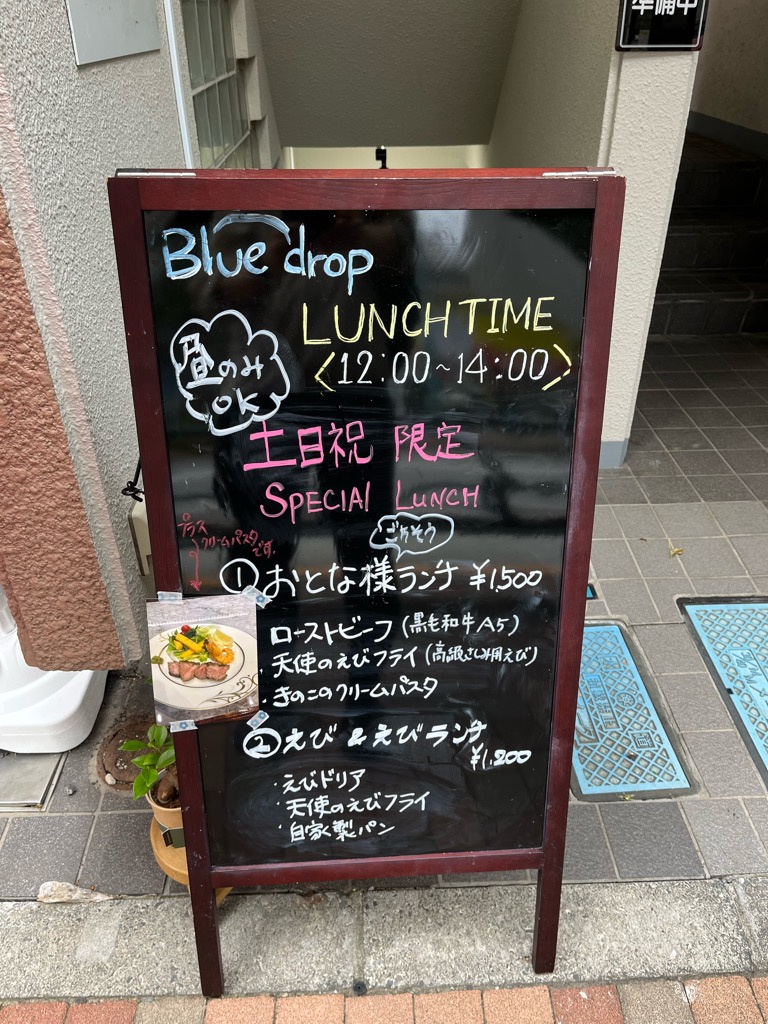 準備中
Blue drop
LUNCH TIME
<12:00~14:00>
昼のみ
OK
土日祝 限定
SPECIAL LUNCH
プラス
クリームパスタ
です。
ごちそう
①おとな様ランチ ¥1,500
ローストビーフ(黒毛和牛A5)
・天使のえびフライ(高級さしみ用えび)
・きのこのクリームパスタ
②えび&えびランチ
¥1,200
・えびドリア
・天使のえびフライ
・自家製パン